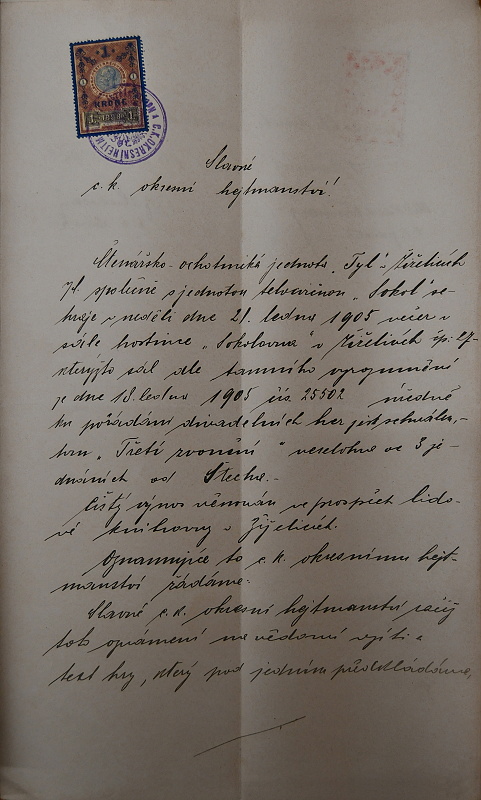 1
KRONE
1898
C.K. OKRESNÍ HEJTM
Slavné
c. k. okresní hejtmanství!
Čtenářsko-ochotnická jednota „Tyl" v Žiželicích
společně s jednotou tělocvičnou „Sokol" se-
hraje v neděli dne 21. ledna 1905 večer v
sále hostince „Sokolovna" v Žiželicích čp. 27-
kterýžto sál dle tamního vyrozumění
ze dne 18. ledna 1905 čís. 25502 úředně
ku pořádání divadelních her jest schválen,-
hru „Třetí zvonění" veselohra ve 3 je-
dnáních od Štecha.-
Čistý výnos věnován ve prospěch lido-
vé knihovny v Žiželicích.
Oznamujíce to c. k. okresnímu hejt-
manství žádáme-
Slavné c. k. okresní hejtmanství račiž
toto oznámení na vědomí vzíti a
text hry, který pod jedním předkládáme,